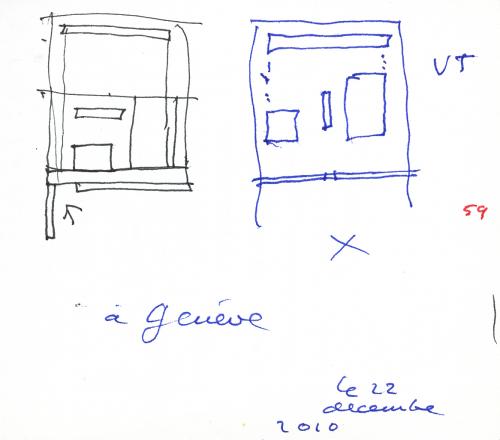 VT
59
à Genève
le 22
décembre
2010